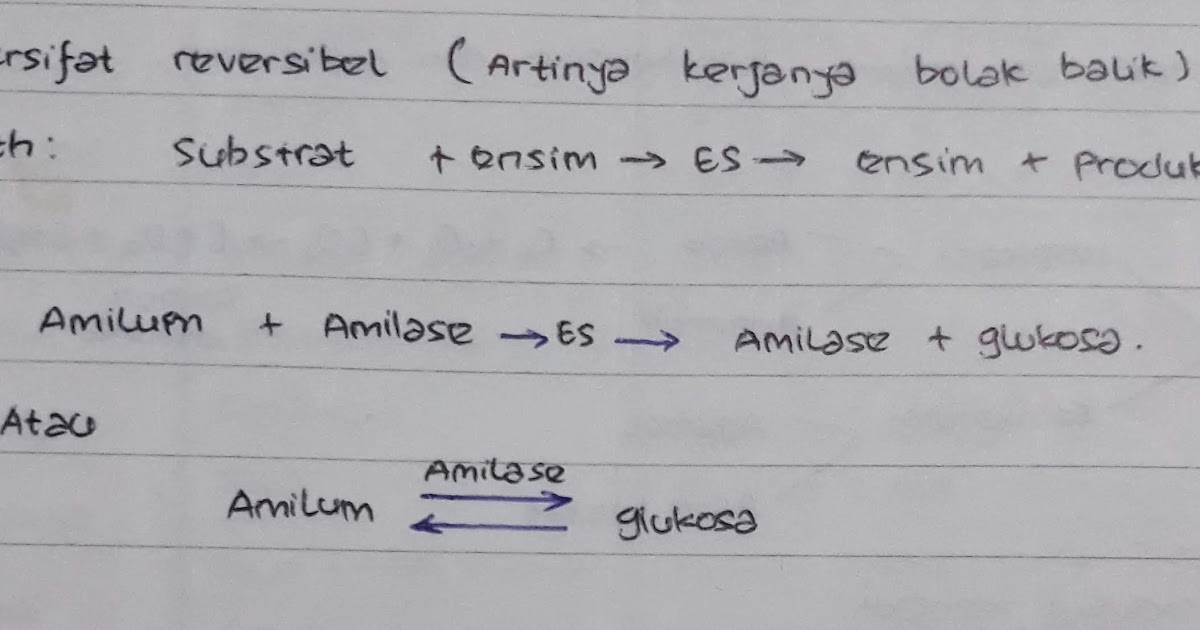 rsifat reversibel (Artinya kerjanya bolak balik)
th: Substrat + ensim → ES → ensim + Produk
Amilum + Amilase → ES → Amilase + glukosa.
Atau
Amilase
Amilum ⇄ glukosa